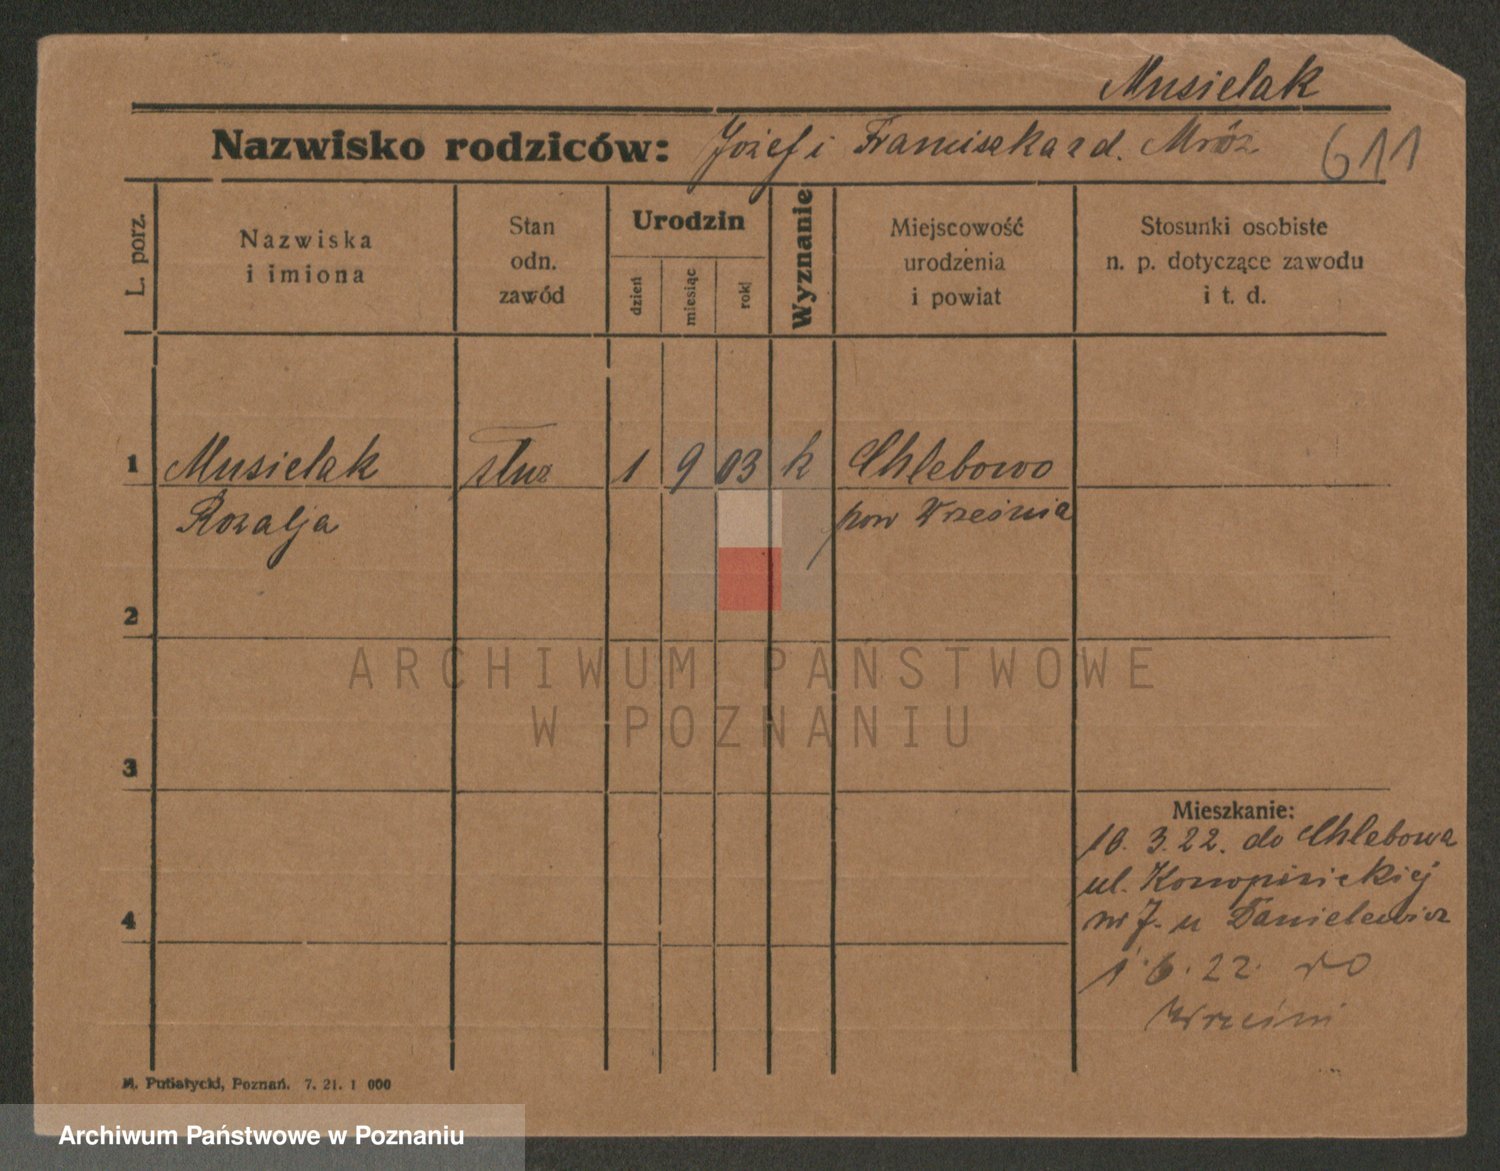 Musielak
Nazwisko rodziców: Józef i Franciszka z d. Mróz 611
L. porz.
Nazwiska
i imiona
Stan
odn.
zawód
Urodzin
dzień
miesiąc
rok
Wyznanie
Miejscowość
urodzenia
i powiat
Stosunki osobiste
n. p. dotyczące zawodu
i t. d.
1 Musielak służ 1 9 03 k Chlebowo
Rozalja pow Września
2
3
4
ARCHIWUM PAŃSTWOWE
W POZNANIU
Mieszkanie:
10. 3. 22. do Chlebowa
ul. Konopnickiej
nr 7. u Danielewicz
1. 6. 22. do
Wrześni
M. Putiatycki, Poznań. 7. 21. 1 000
Archiwum Państwowe w Poznaniu